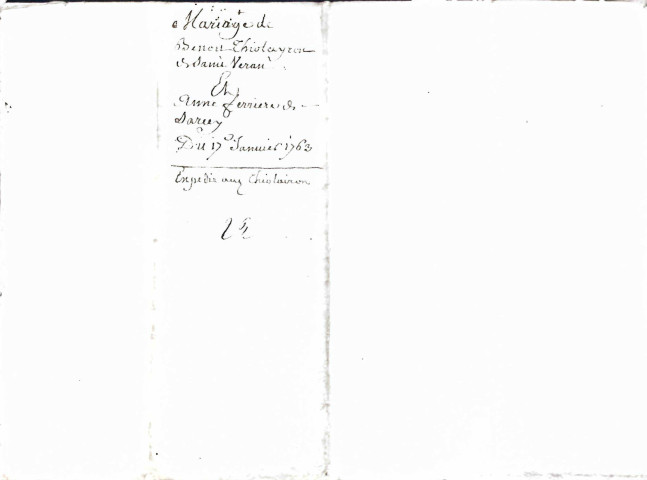 Mariage de
Benoit Thiolayron
de Saint Veran
Et
Anne ferriere de
Darcey
Du 17e Janvier 1763
Expedié aux Thiolairon